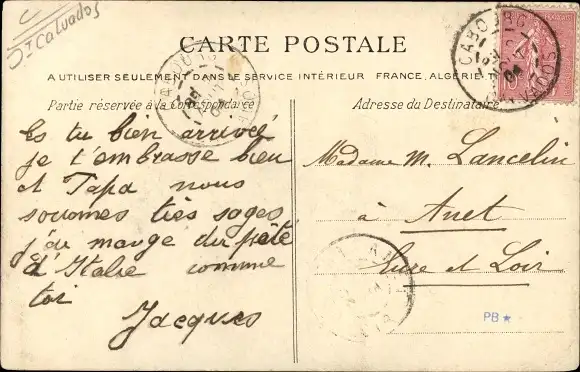 Dt Calvados
CARTE POSTALE
A UTILISER SEULEMENT DANS LE SERVICE INTÉRIEUR FRANCE, ALGÉRIE
Partie réservée à la Correspondance
Es tu bien arrivée
je t'embrasse bien
et Papa nous
sommes très sages
j'ai mangé du pâté
d'Italie comme
toi
Jacques
Adresse du Destinataire
Madame M. Lancelin
à Anet
Eure et Loir
CABOURG
CALVADOS
10
PB